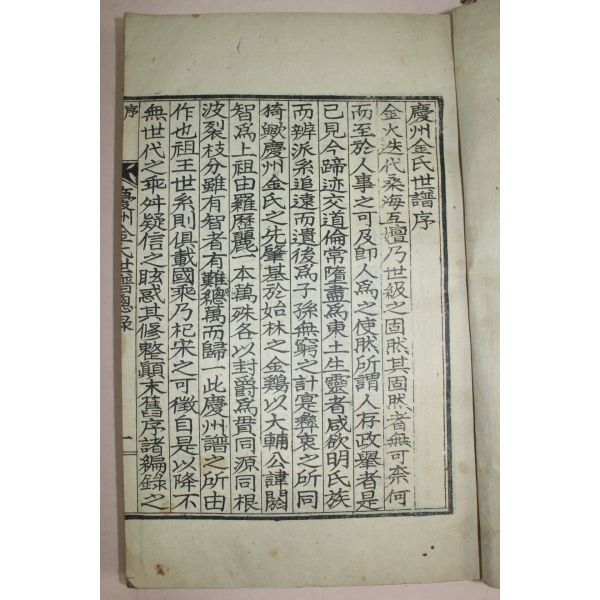 慶州金氏世譜序
金火迭代桑海互擅乃世級之固然其固然者無可柰何
而至於人事之可及卽人爲之使然所謂人存政擧者是
已見今蹄迹交道倫常隳盡爲東土生靈者咸欲明氏族
而辨派系追遠而遺後爲子孫無窮之計寔彝衷之所同
猗歟慶州金氏之先肇基於始林之金鷄以大輔公諱閼
智爲上祖由羅歷麗一本萬殊各以封爵爲貫同源同根
波裂枝分雖有智者有難總萬而歸一此慶州譜之所由
作也祖王世系則俱載國乘乃杞宋之可徵自是以降不
無世代之乖舛疑信之眩惑其修整顚末舊序諸編錄之
序 慶州金氏世譜總錄 一